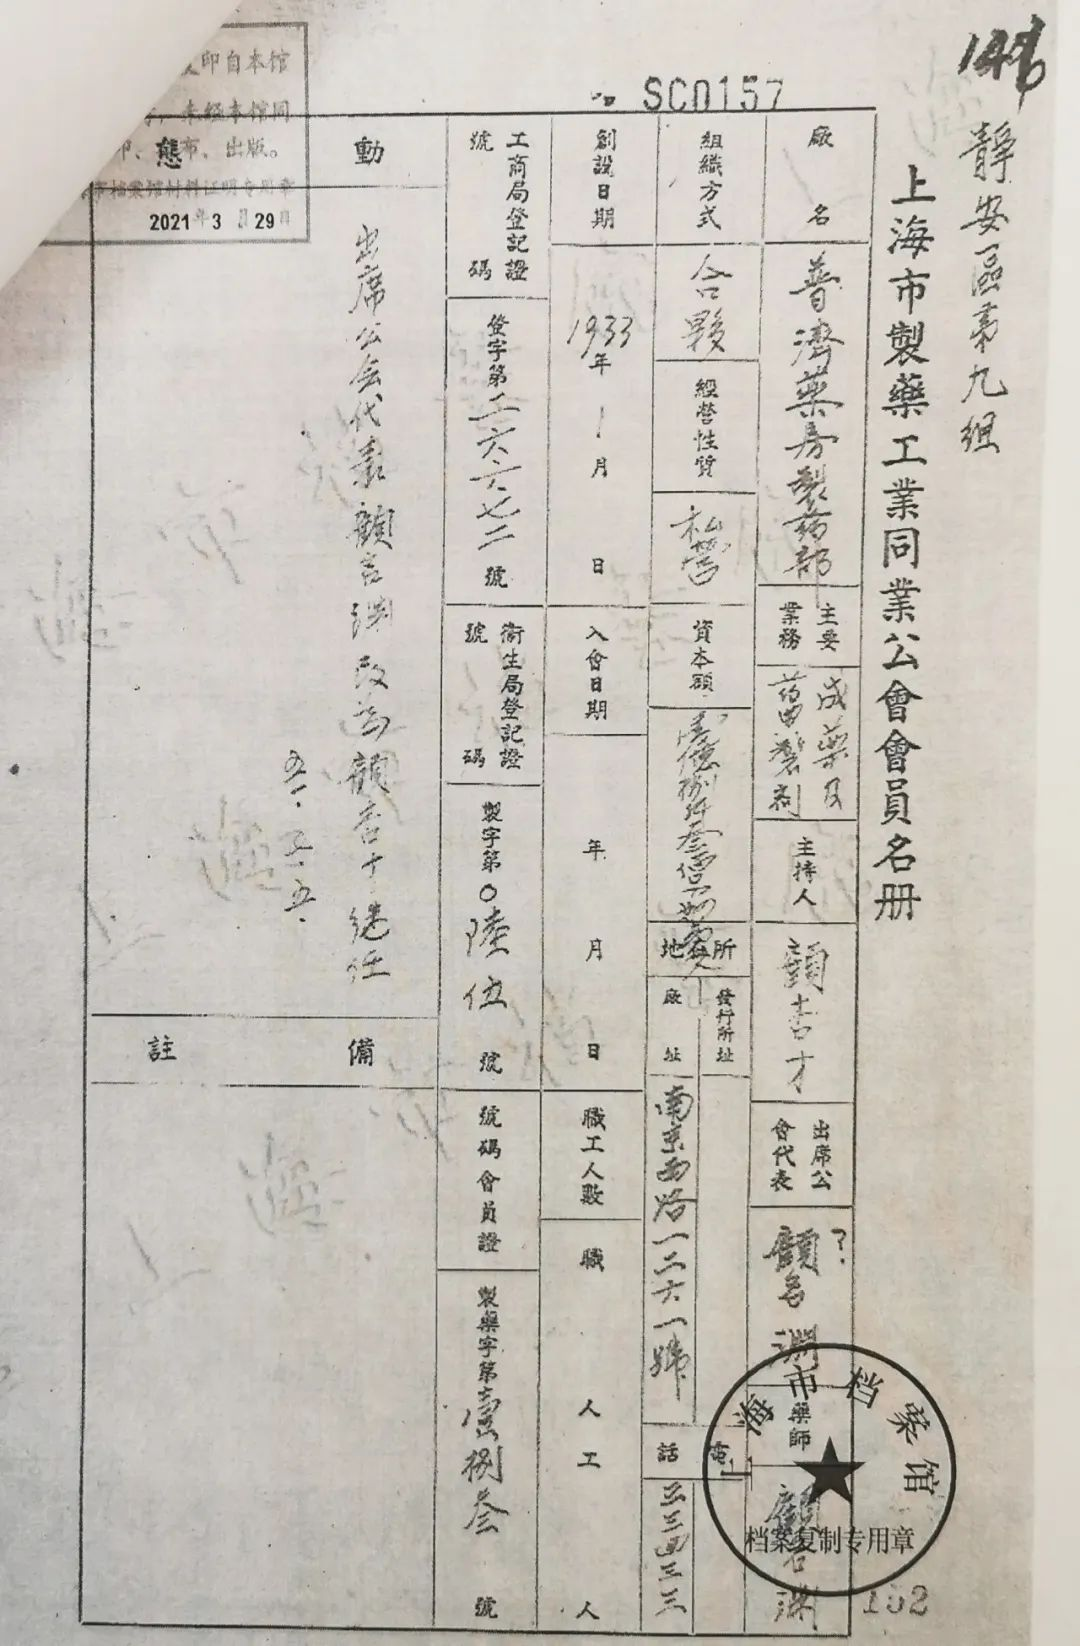 146
靜安區第九組
上海市製藥工業同業公會會員名册
SC0157
廠名
普濟藥房製葯部
主要業務
成藥及
製劑
主持人
顧杏才
出席公會代表
顧言淵
?
藥師
顧言淵
組織方式
合夥
經營性質
私營
資本額
所在地
發行所址
廠址
南京西路一二六一號
電話
三三四三三
創設日期
1933年1月日
入會日期
年月日
職工人數
職人
工人
工商局登記證號碼
登字第二六六七二號
衛生局登記證號碼
製字第〇陸伍號
會員證號碼
製藥字第壹捌叁號
動態
出席公会代表顧言渊改為顧杏才继任
五一.三.五.
備註
印自本馆
未经本馆同
布、出版。
档案馆材料证明专用章
2021年3月29日
海市档案馆
档案复制专用章
152